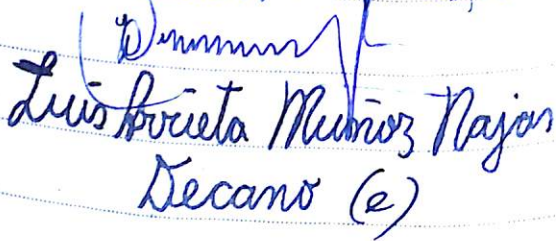 Luis Arrieta Muñoz Najar
Decano (e)